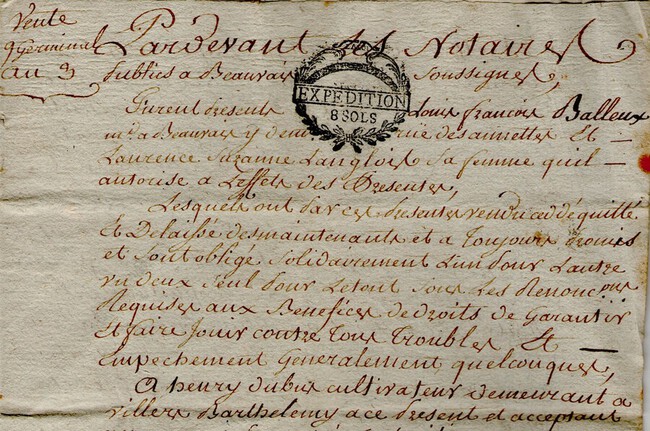 Vente
9 Germinal
an 3
Pardevant Les Notaires
publics a Beauvais Soussignes,
EXPEDITION
8 SOLS
furent presents Louis francois Balleux
md a Beauvais y dem rue des annettes Et
Laurence Suzanne Langlois Sa femme quil
autorise a L'effet des Presentes,
Lesquels ont par ces presentes vendu cedé quitté
Et Delaissé desmaintenant et a Toujours promis
et Sont obligé Solidairement L'un pour L'autre
un deux Seul pour Le tout Sous Les Renoncons
Requises aux Benefices de droits de Garantir
Et faire Jouir contre Tous Troubles Et
Empechement Generalement quelconques,
A henry dubus cultivateur demeurant a
villers Barthelemy a ce present et acceptant